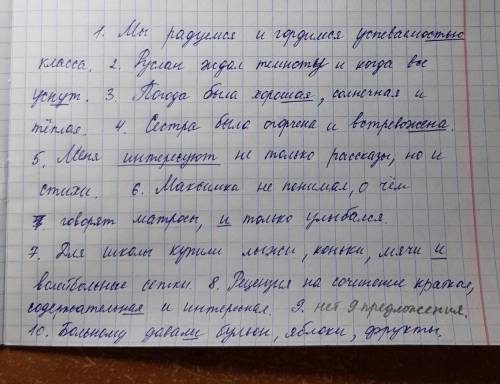 1. Мы радуемся и гордимся успеваемостью
класса. 2. Руслан ждал темноты и когда все
уснут. 3. Погода была хорошая, солнечная и
тёплая. 4. Сестра была огорчена и встревожена.
5. Меня интересуют не только рассказы, но и
стихи. 6. Максимка не понимал, о чём
говорят матросы, и только улыбался.
7. Для школы купили лыжи, коньки, мячи и
волейбольные сетки. 8. Рецензия на сочинение краткая,
содержательная и интересная. 9. нет 9 предложения.
10. Больному давали бульон, яблоки, фрукты.